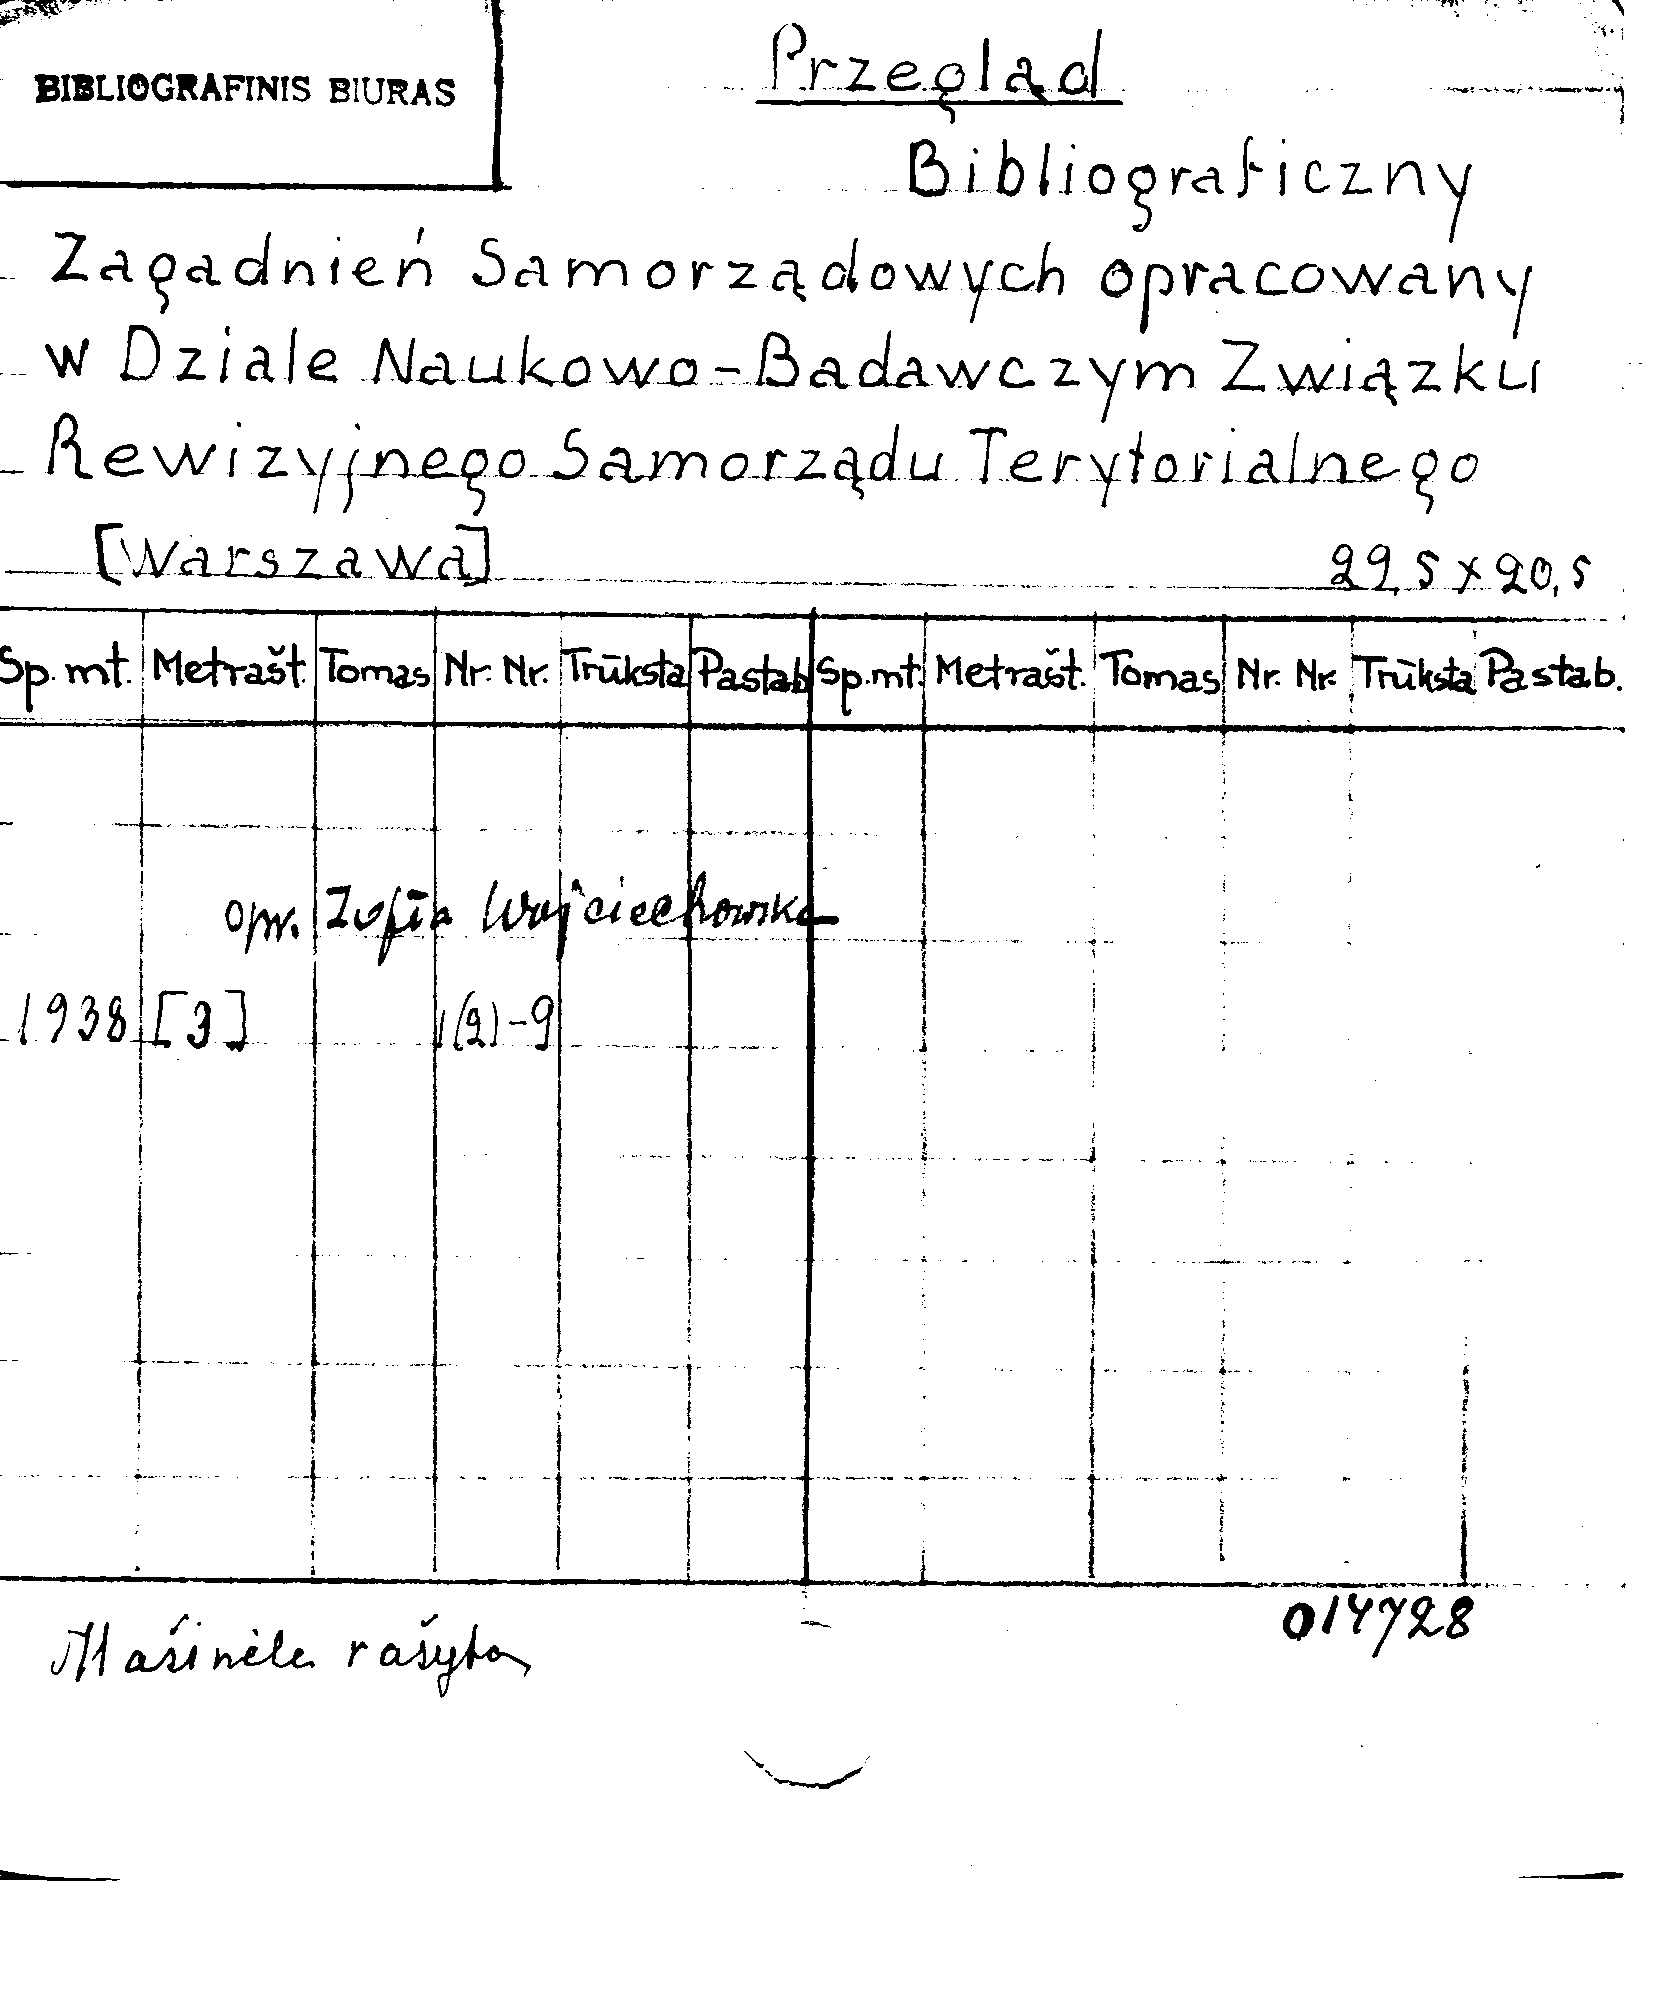 BIBLIOGRAFINIS BIURAS
Przegląd
Bibliograficzny
Zagadnień Samorządowych opracowany
w Dziale Naukowo-Badawczym Związku
Rewizyjnego Samorządu Terytorialnego
[Warszawa] 29,5 x 20,5
Sp. mt. Metrašt. Tomas Nr. Nr. Trūksta Pastab Sp. mt. Metrašt. Tomas Nr. Nr. Trūksta Pastab.
opr. Zofia Wojciechowska
1938 [3] 1(2)-9
014728
Mašinėle rašyta